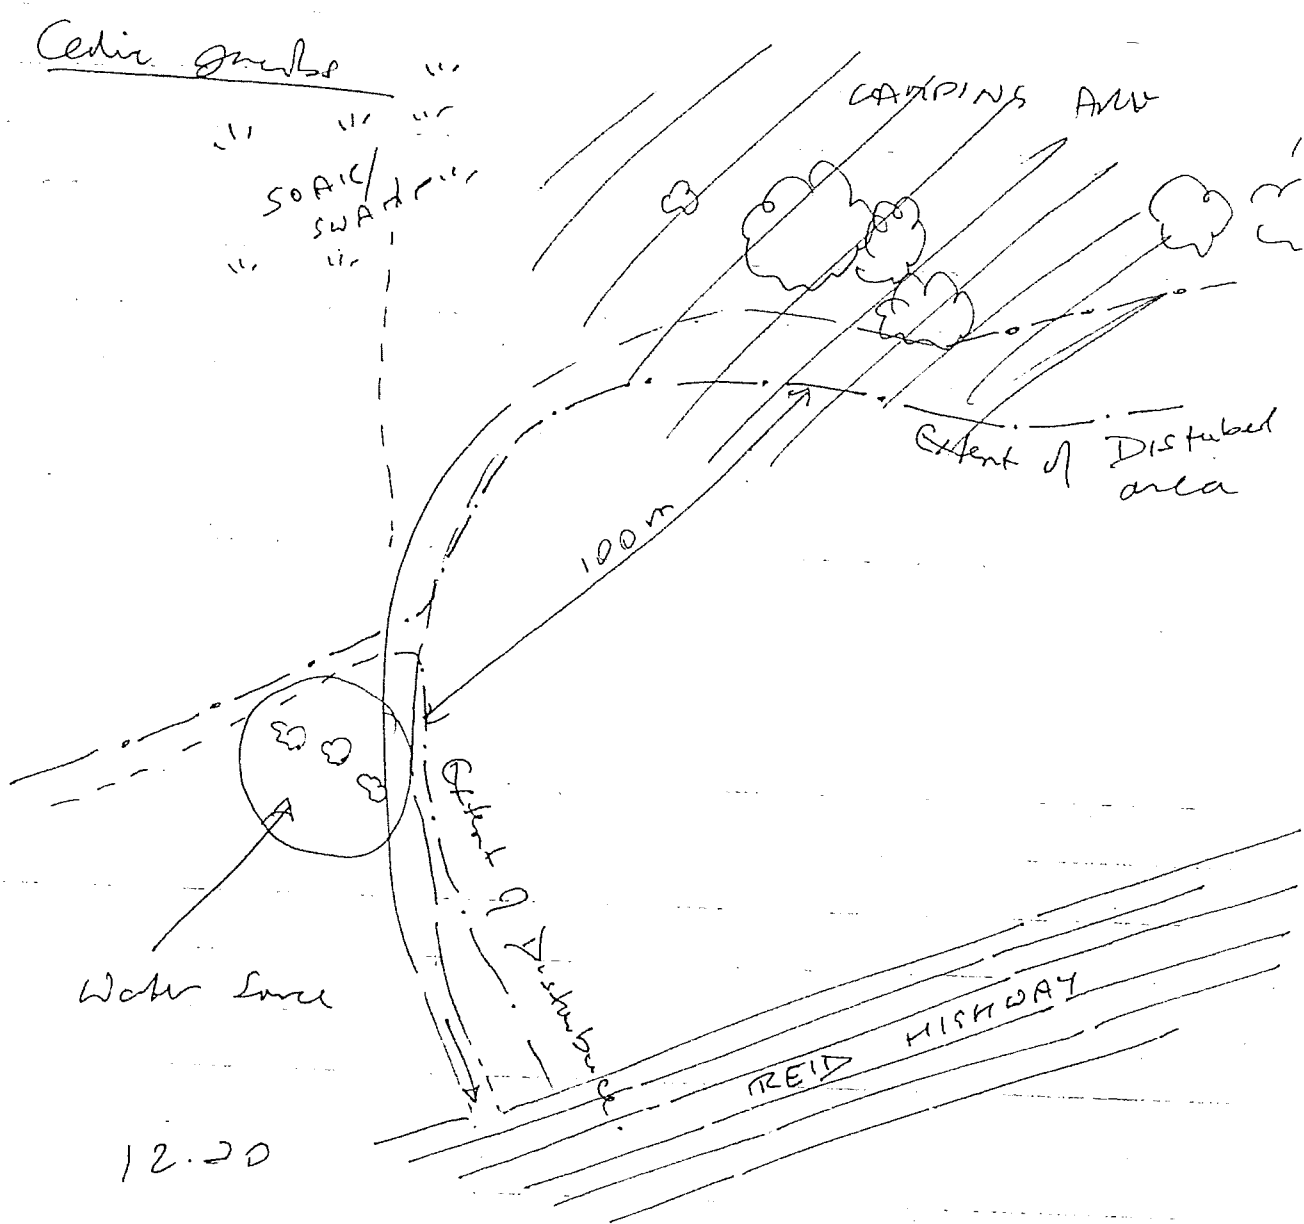 Cedric Jacobs
CAMPING AREA
SOAK/
SWAMP
Extent of Disturbed
area
100m
Extent of Disturbance
Water Source
REID HIGHWAY
12.20